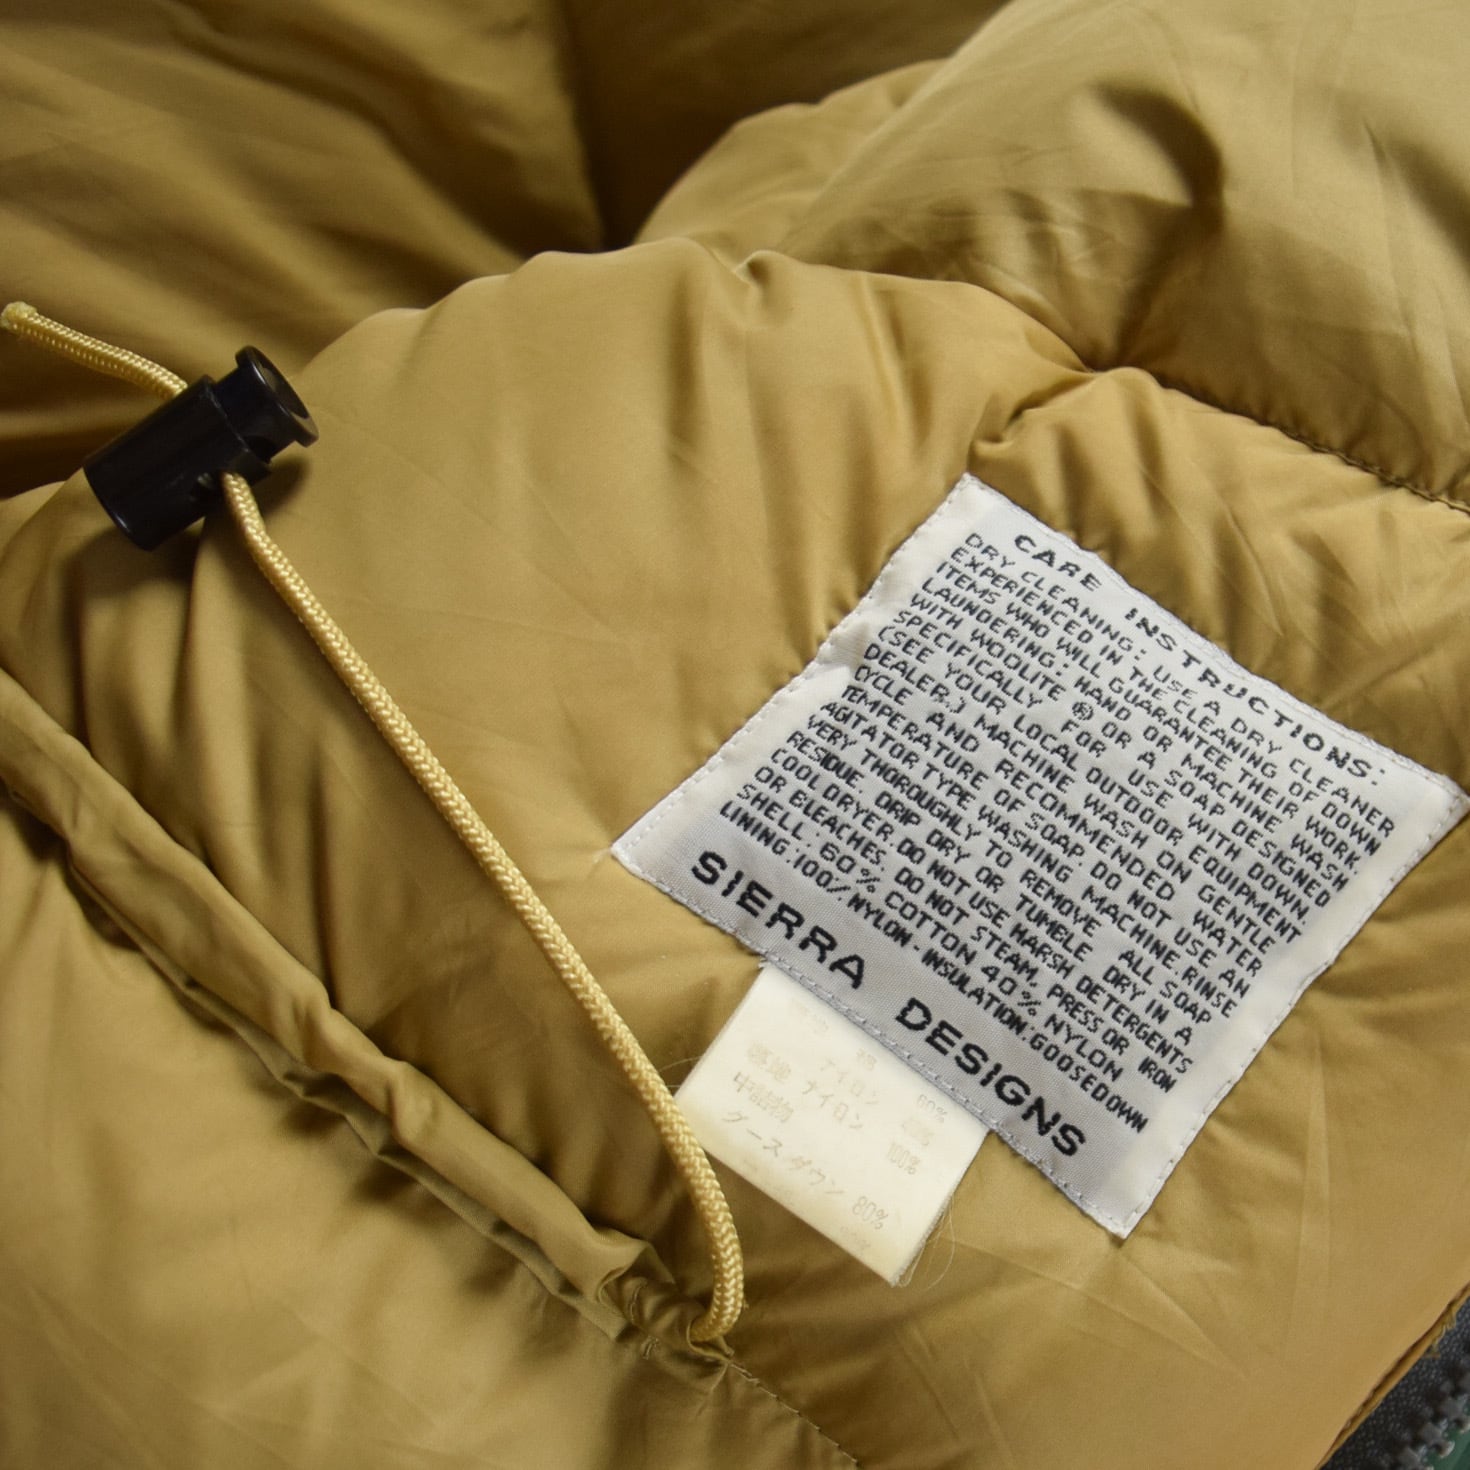 CARE INSTRUCTIONS:
DRY CLEANING: USE A DRY CLEANER
EXPERIENCED IN THE CLEANING OF DOWN
ITEMS WHO WILL GUARANTEE THEIR WORK.
LAUNDERING: HAND OR MACHINE WASH
WITH WOOLITE ® OR A SOAP DESIGNED
SPECIFICALLY FOR USE WITH DOWN.
(SEE YOUR LOCAL OUTDOOR EQUIPMENT
DEALER.) MACHINE WASH ON GENTLE
CYCLE AND RECOMMENDED WATER
TEMPERATURE OF SOAP. DO NOT USE AN
AGITATOR TYPE WASHING MACHINE. RINSE
VERY THOROUGHLY TO REMOVE ALL SOAP
RESIDUE. DRIP DRY OR TUMBLE DRY IN A
COOL DRYER. DO NOT USE HARSH DETERGENTS
OR BLEACHES. DO NOT STEAM, PRESS OR IRON
SHELL: 60% COTTON 40% NYLON
LINING:100% NYLON·INSULATION:GOOSEDOWN
SIERRA DESIGNS
綿 60%
ナイロン
ナイロン 100%
中詰物
グースダウン 80%